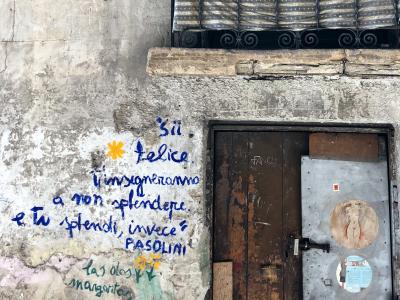 "Sii
felice
T'insegneranno
a non splendere.
e Tu splendi, invece"
PASOLINI
las dos
margaritas